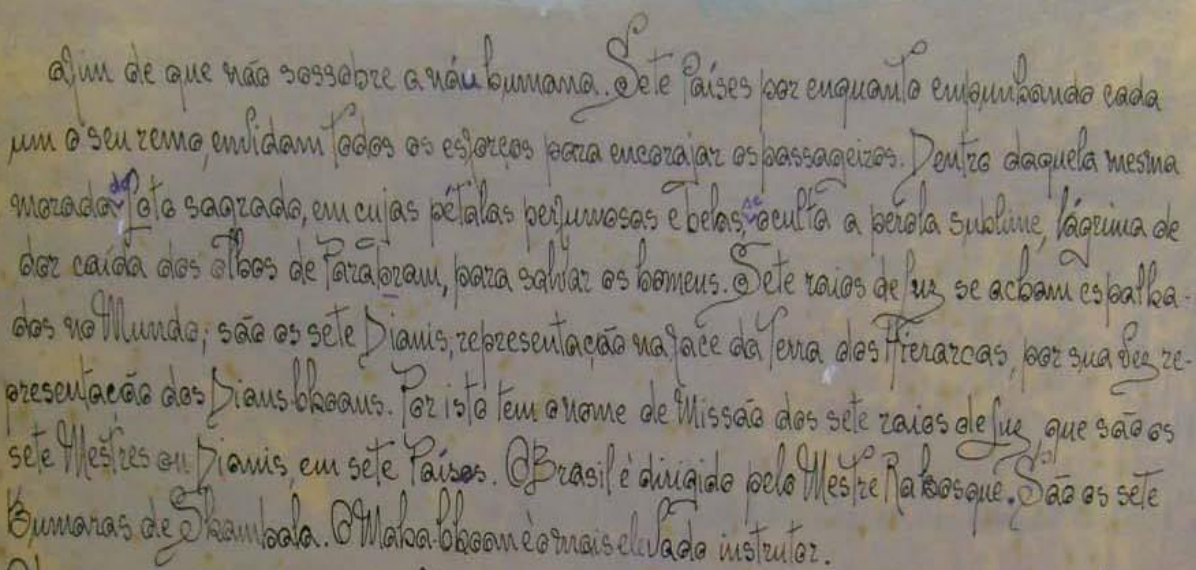 afim de que não sossobre a náu humana. Sete Países por enquanto empunhando cada
um o seu remo, envidam todos os esforços para encorajar os passageiros. Dentro daquela mesma
morada do Loto sagrado, em cujas pétalas perfumosas e belas, se oculta a perola sublime, lágrima de
dor caída dos olhos de Parabram, para salvar os homens. Sete raios de luz se acham espalha-
dos no Mundo; são os sete Dianis, representação na face da Terra dos Hierarcas, por sua vez re-
presentação dos Dians-bhoans. Por isto tem o nome de Missão dos sete raios de luz, que são os
sete Mestres ou Dianis, em sete Países. O Brasil é dirigido pelo Mestre Rakosque. São os sete
Bumaras de Skambala. O Maha-bhoan è o mais elevado instrutor.